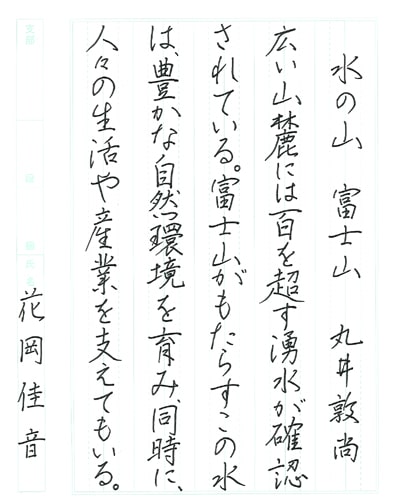 水の山 富士山 丸井敦尚
広い山麓には百を超す湧水が確認
されている。富士山がもたらすこの水
は、豊かな自然環境を育み、同時に、
人々の生活や産業を支えてもいる。
花岡佳音